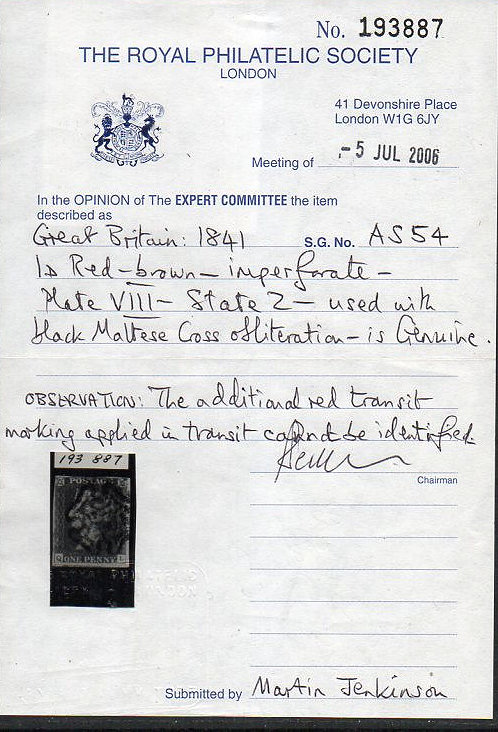 No. 193887
THE ROYAL PHILATELIC SOCIETY
LONDON
41 Devonshire Place
London W1G 6JY
Meeting of - 5 JUL 2006
In the OPINION of The EXPERT COMMITTEE the item
described as
Great Britain: 1841 S.G. No. AS54
1D Red-brown - imperforate -
Plate VIII - State 2 - used with
black Maltese Cross obliteration - is Genuine.
OBSERVATION: The additional red transit
marking applied in transit cannot be identified.
Chairman
193 887
POSTAGE
ONE PENNY
Submitted by Martin Jenkinson